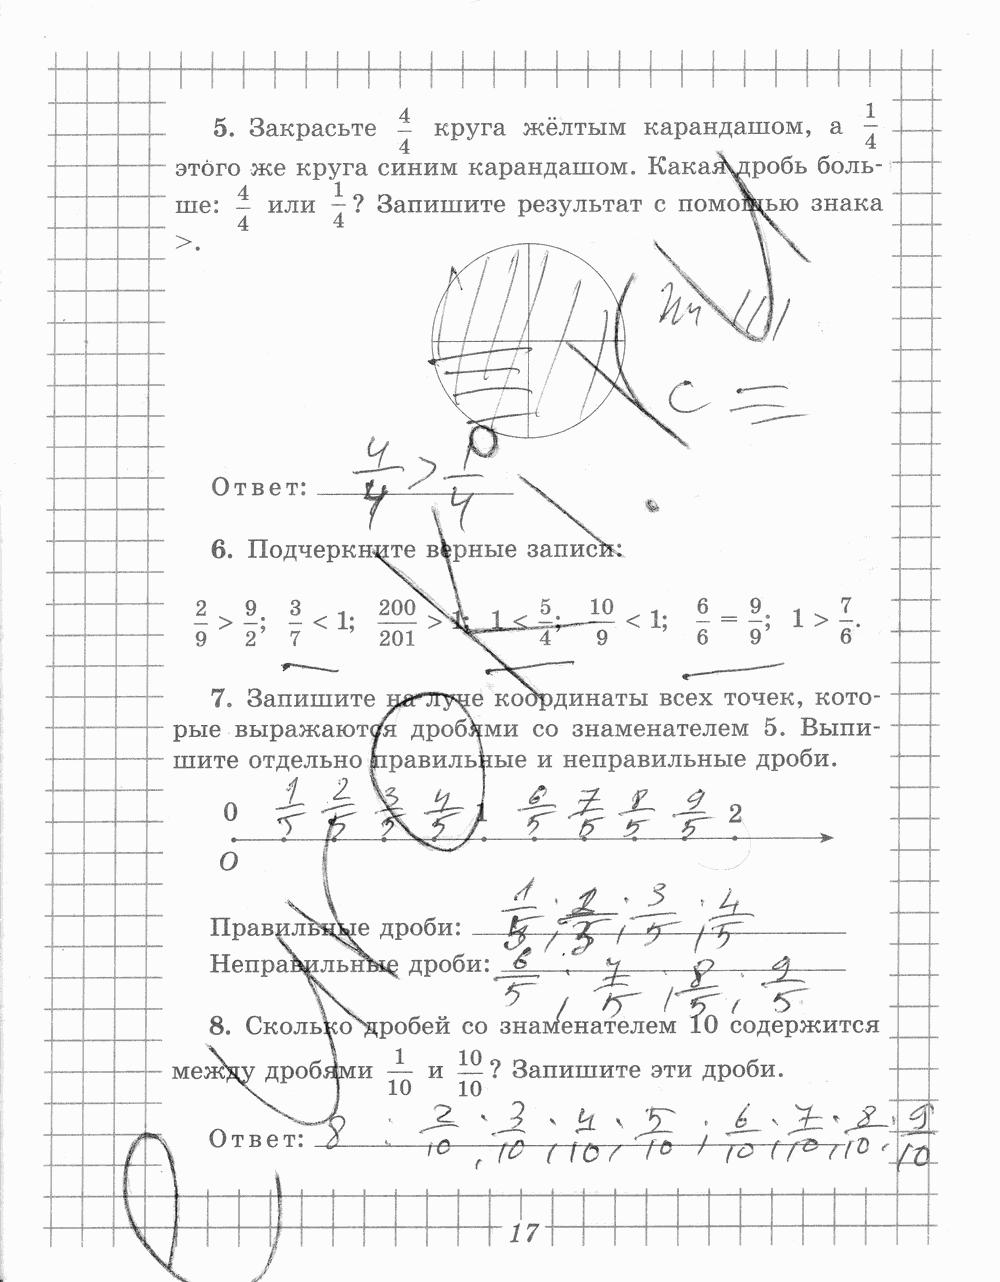 5. Закрасьте 4/4 круга жёлтым карандашом, а 1/4
этого же круга синим карандашом. Какая дробь боль-
ше: 4/4 или 1/4? Запишите результат с помощью знака
>.
С =
Ответ: 4/4 > 1/4
6. Подчеркните верные записи:
2/9 > 9/2; 3/7 < 1; 200/201 > 1; 1 < 5/4; 10/9 < 1; 6/6 = 9/9; 1 > 7/6.
7. Запишите на луче координаты всех точек, кото-
рые выражаются дробями со знаменателем 5. Выпи-
шите отдельно правильные и неправильные дроби.
0 1/5 2/5 3/5 4/5 1 6/5 7/5 8/5 9/5 2
O
Правильные дроби: 1/5; 2/5; 3/5; 4/5
Неправильные дроби: 6/5; 7/5; 8/5; 9/5
8. Сколько дробей со знаменателем 10 содержится
между дробями 1/10 и 10/10? Запишите эти дроби.
Ответ: 8 : 2/10; 3/10; 4/10; 5/10; 6/10; 7/10; 8/10; 9/10
17